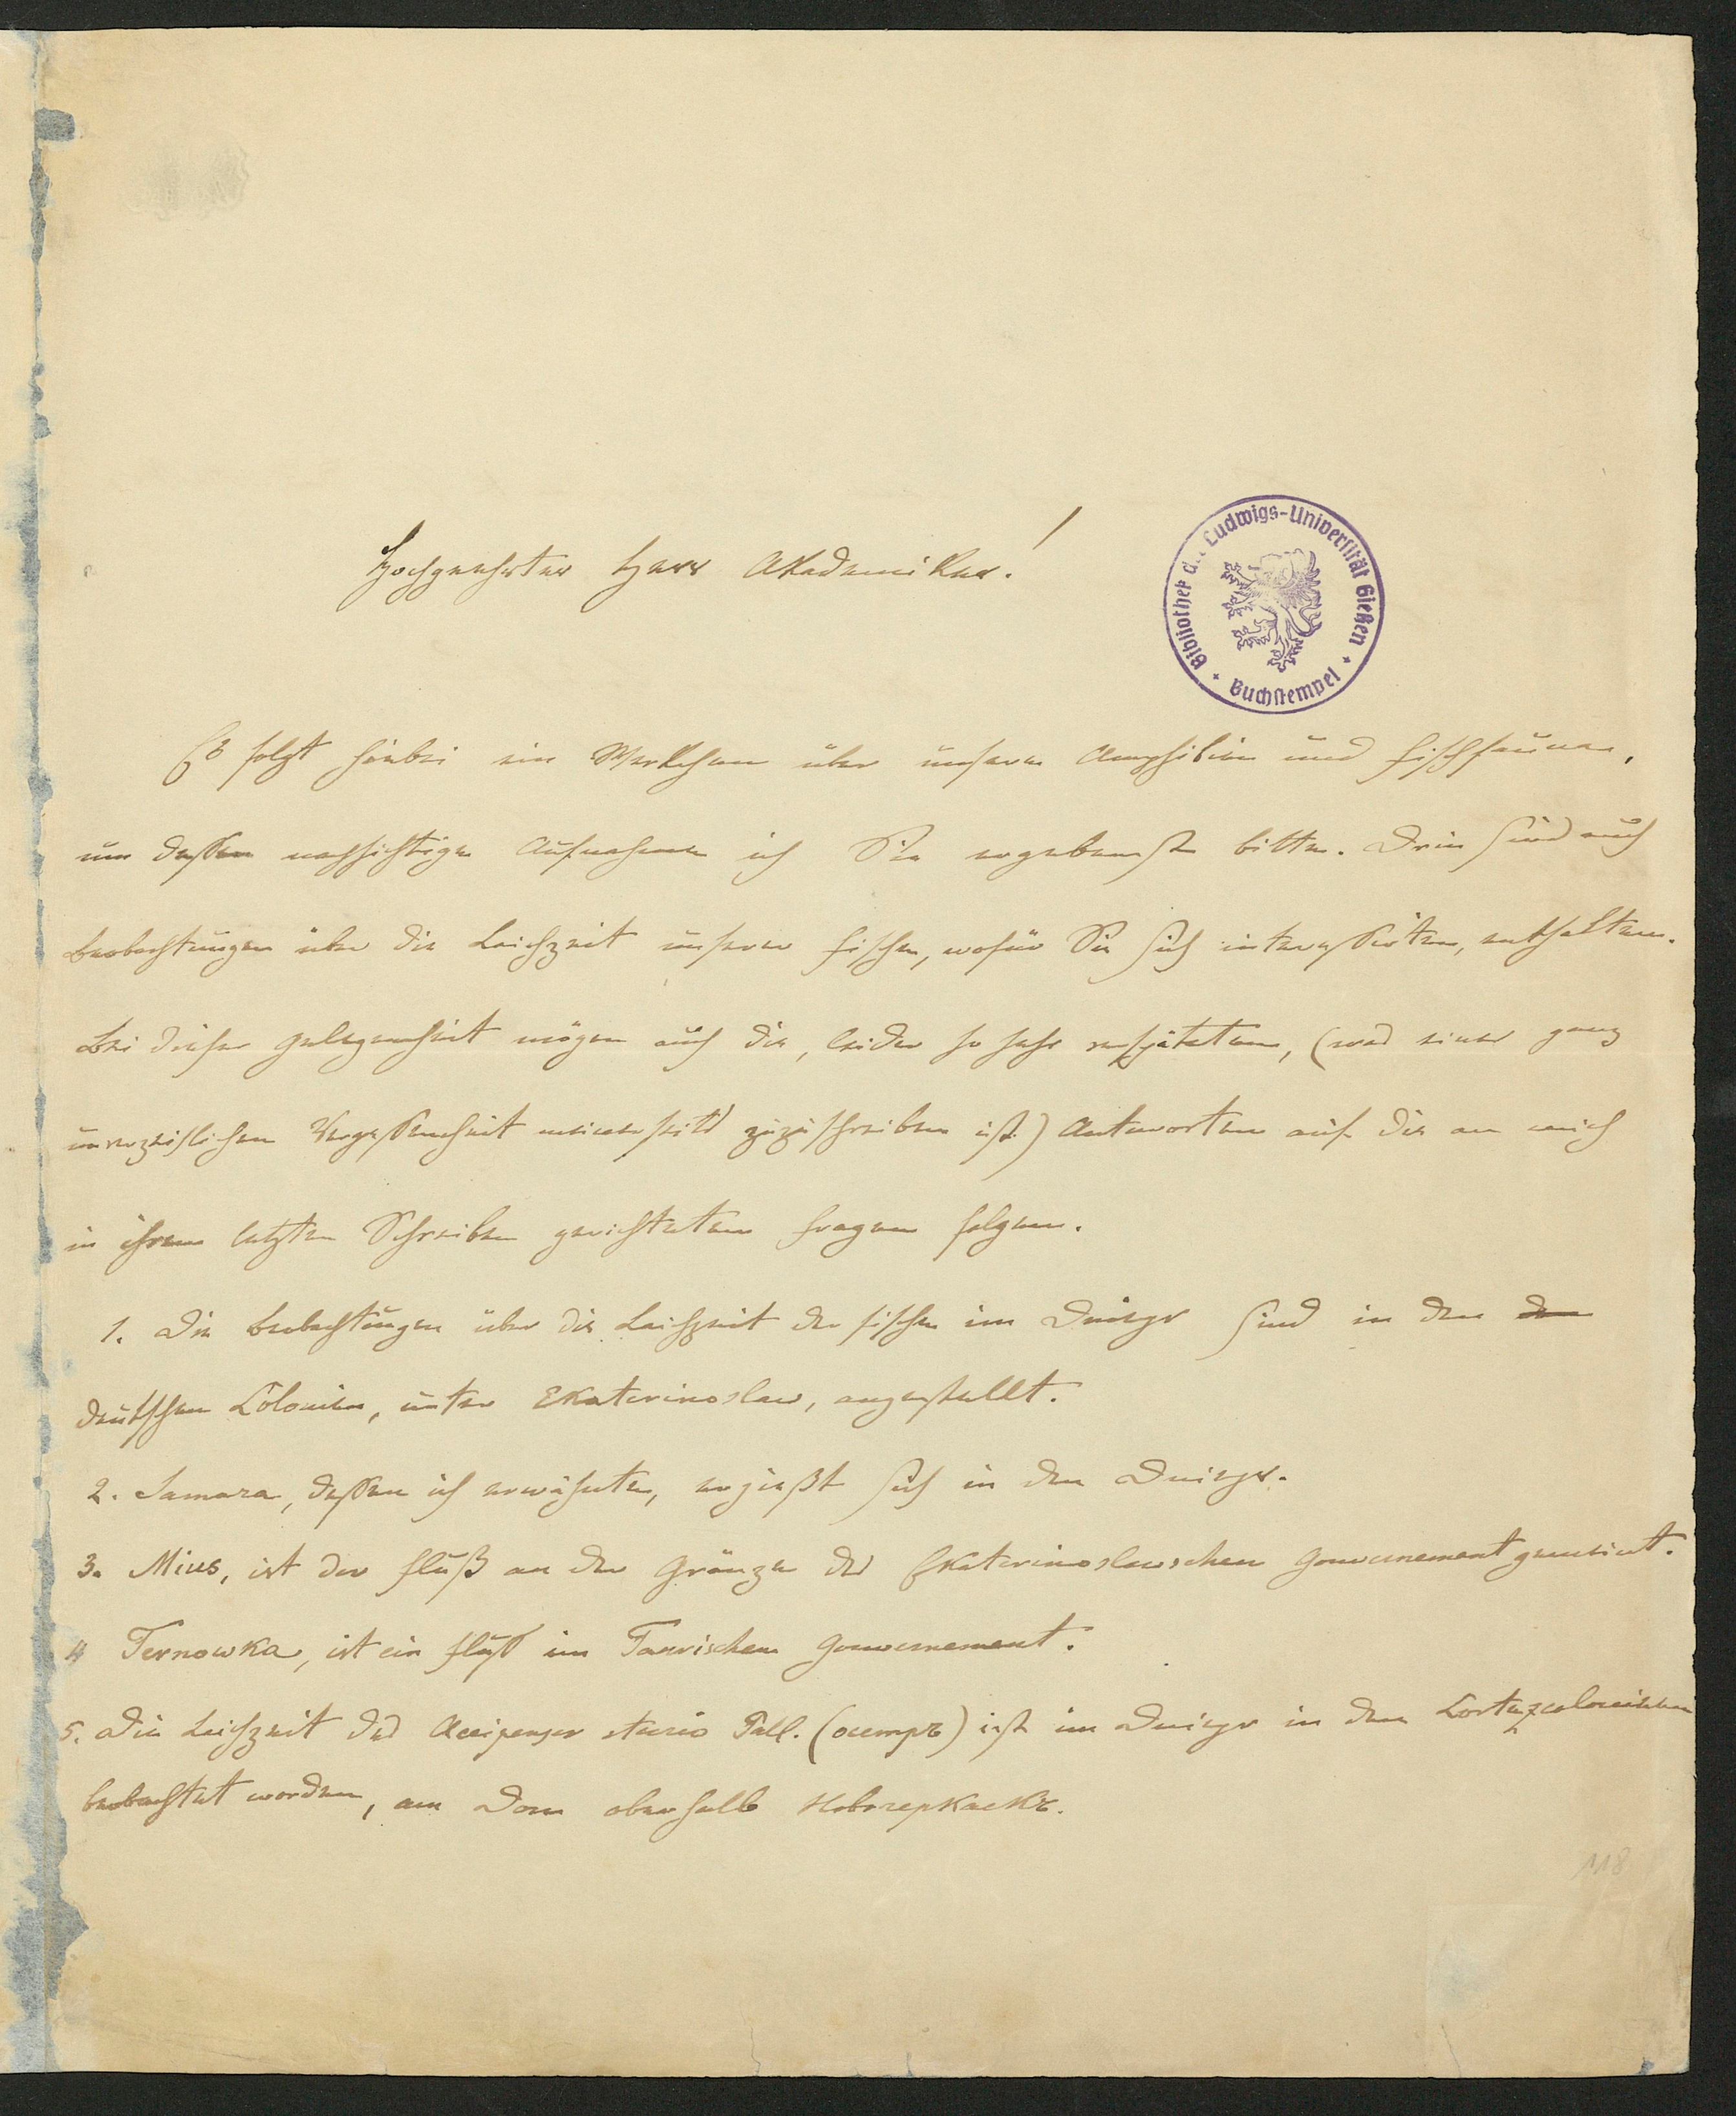 Hochgeehrter Herr Akademiker!
Bibliothek d. Ludwigs-Universität Gießen
Buchstempel
Es folgt hiebei ein Werkchen über unsere Amphibien und Fischfauna,
um dessen nachsichtige Aufnahme ich Sie ergebenst bitte. Drin sind auch
Beobachtungen über die Laichzeit unserer Fische, wofür Sie sich interessirten, enthalten.
Bei dieser Gelegenheit mögen auch die, leider so sehr verspäteten, (was einer ganz
unverzeihlichen Vergessenheit meinerseits zuzuschreiben ist) Antworten auf die an mich
in ihrem letzten Schreiben gerichteten Fragen folgen.
1. Die Beobachtungen über die Laichzeit der Fische im Dniepr sind in den den
deutschen Colonien, unter Ekaterinoslaw, angestellt.
2. Samara, dessen ich erwähnte, ergießt sich in den Dniepr.
3. Mius, ist der Fluß an der Gränze des Ekaterinoslawschen Gouvernement gemeint.
4 Ternowka, ist ein Fluß im Taurischen Gouvernement.
5. Die Laichzeit des Accipenser sturio Pall. (осетръ) ist im Dniepr in den
beobachtet worden, am Don oberhalb Новочеркаскъ.
118